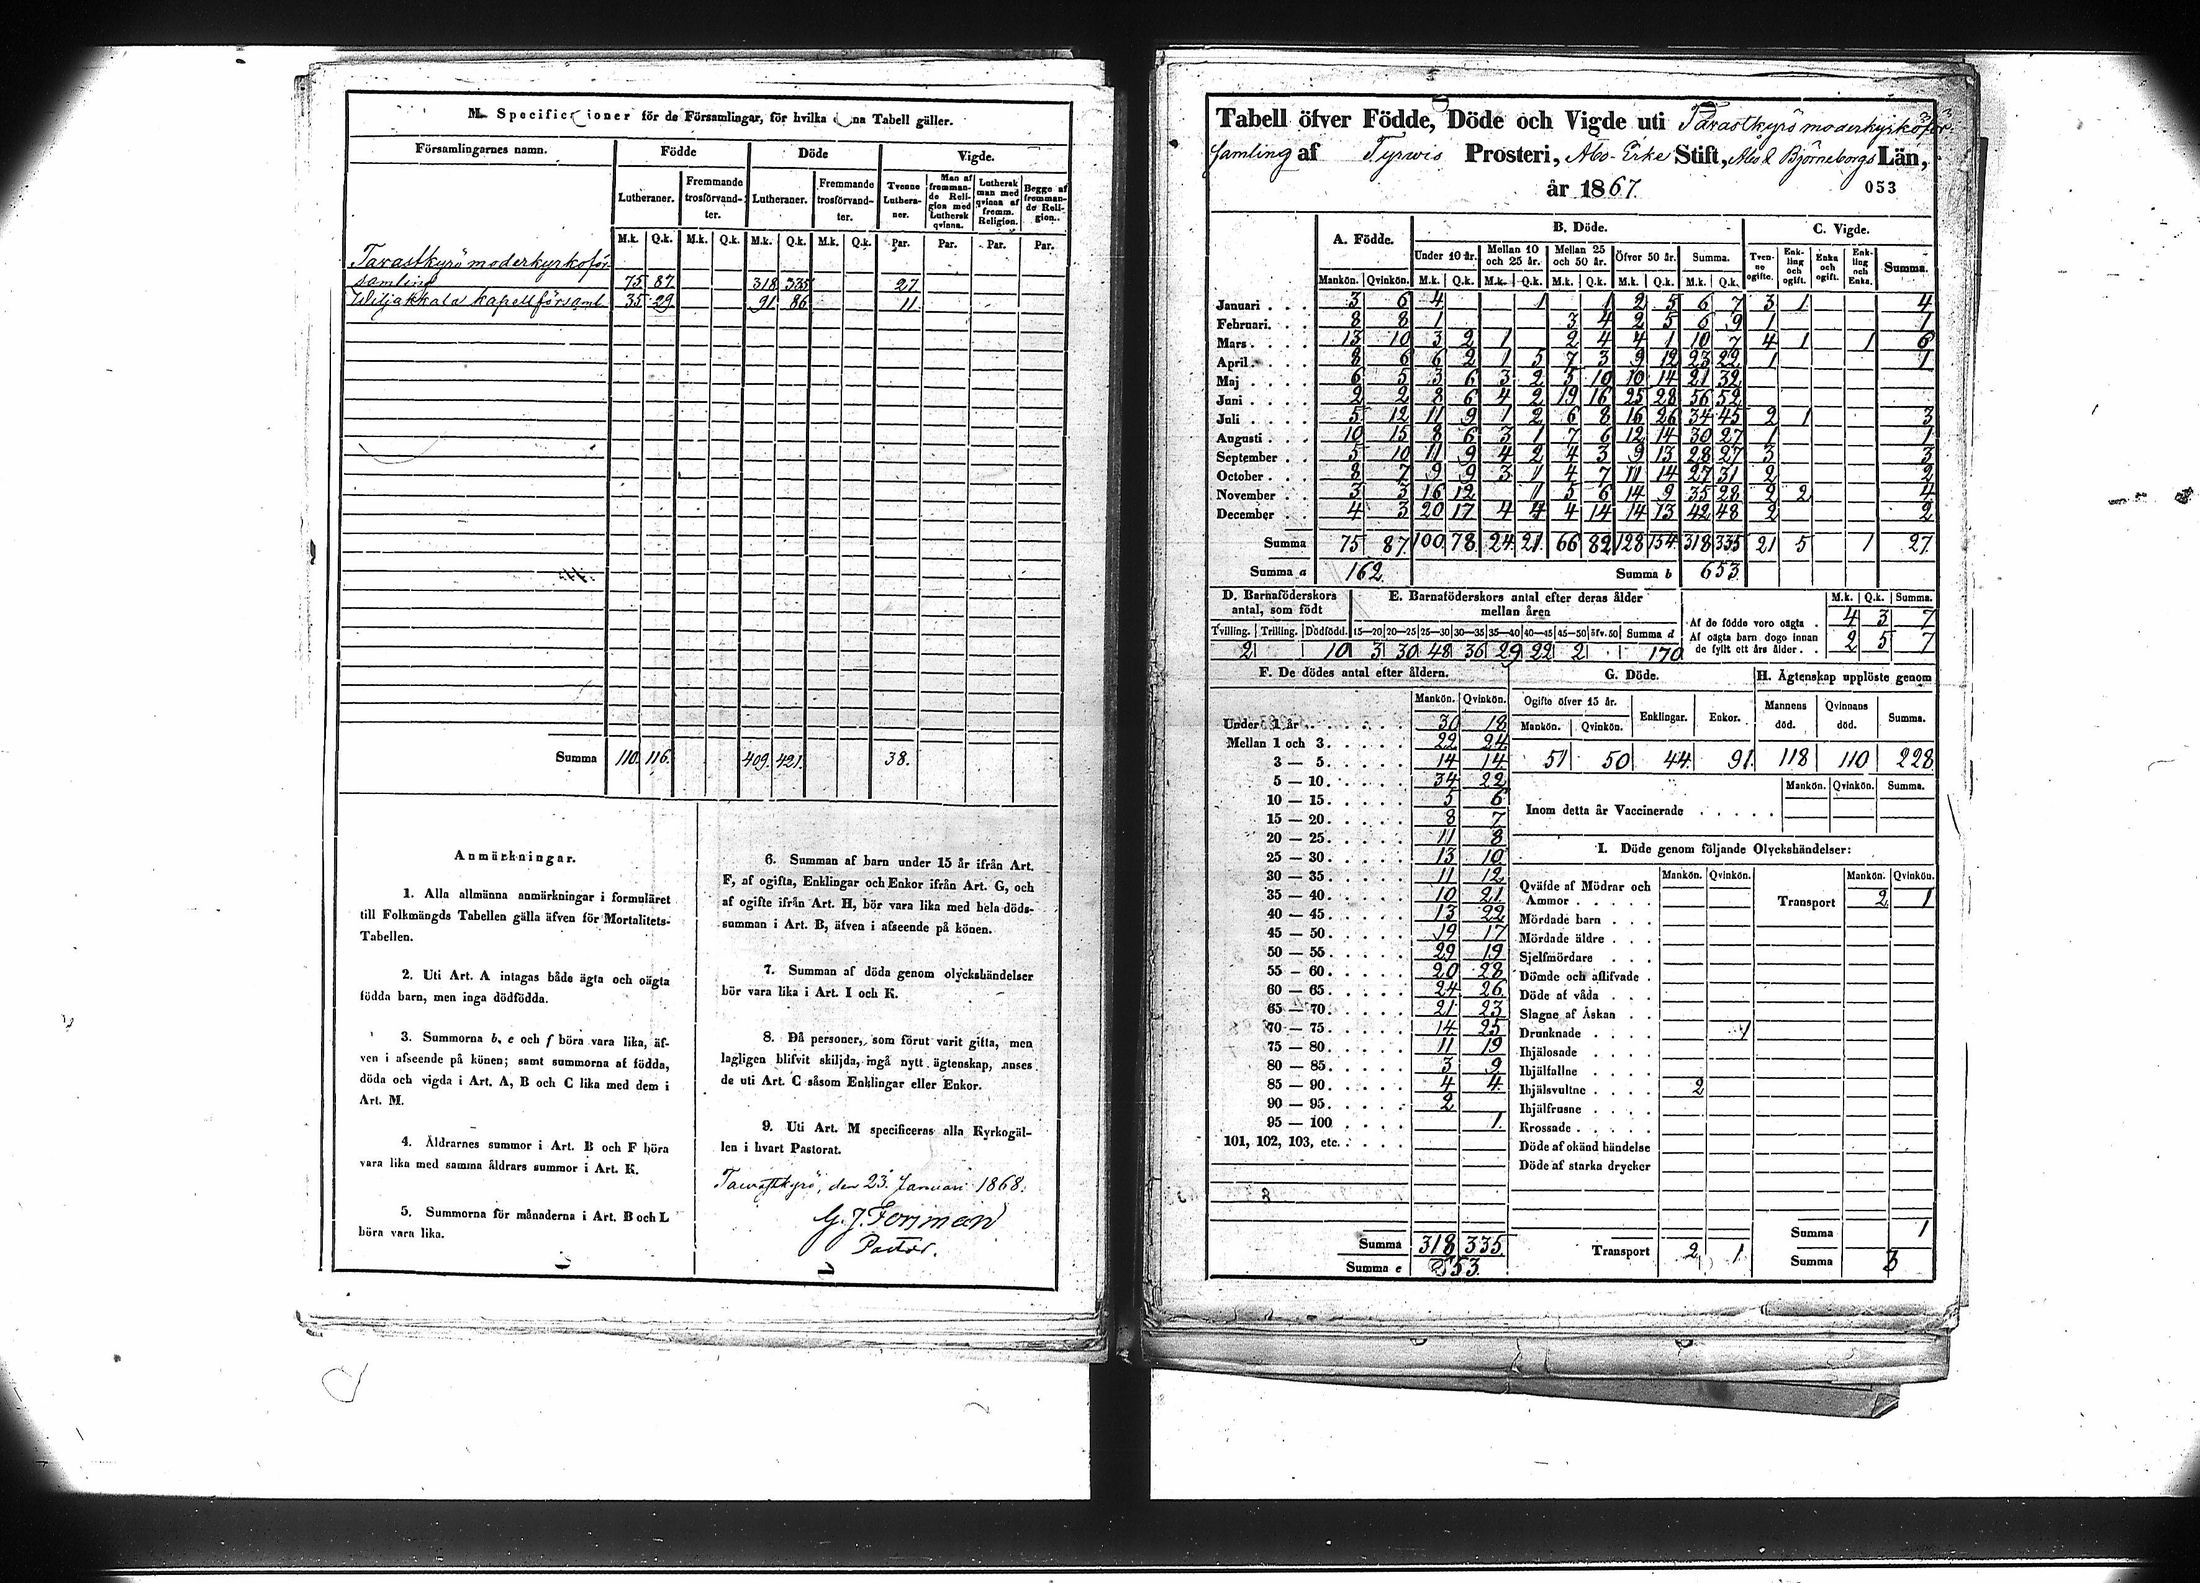 M. Specificationer för de Församlingar, för hvilka denna Tabell gäller.
Församlingarnes namn. Födde Döde Vigde.
Lutheraner. Fremmande trosförvandter. Lutheraner. Fremmande trosförvandter. Tvenne Lutheraner. Man af fremmande Religion med Luthersk qvinna. Luthersk man med qvinna af fremm. Religion. Begge af fremmande Religion.
M.k. Q.k. M.k. Q.k. M.k. Q.k. M.k. Q.k. Par. Par. Par. Par.
Tavastkyrö moderkyrkoför-
samling 75 87 318 335 27
Wiljakkala kapellförsaml 35 29 91 86 11
Summa 110. 116. 409. 421. 38.
Anmärkningar.
1. Alla allmänna anmärkningar i formuläret
till Folkmängds Tabellen gälla äfven för Mortalitets-
Tabellen.
2. Uti Art. A intagas både ägta och oägta
födda barn, men inga dödfödda.
3. Summorna b, e och f böra vara lika, äf-
ven i afseende på könen; samt summorna af födda,
döda och vigda i Art. A, B och C lika med dem i
Art. M.
4. Åldrarnes summor i Art. B och F böra
vara lika med samma åldrars summor i Art. K.
5. Summorna för månaderna i Art. B och L
böra vara lika.
6. Summan af barn under 15 år ifrån Art.
F, af ogifta, Enklingar och Enkor ifrån Art. G, och
af ogifte ifrån Art. H, bör vara lika med hela döds-
summan i Art. B, äfven i afseende på könen.
7. Summan af döda genom olyckshändelser
bör vara lika i Art. I och K.
8. Då personer, som förut varit gifta, men
lagligen blifvit skiljda, ingå nytt ägtenskap, anses
de uti Art. C såsom Enklingar eller Enkor.
9. Uti Art. M specificeras alla Kyrkogäl-
len i hvart Pastorat.
Tawastkyrö, den 23 Januari 1868.
G. J. Forsman
Pastor.
Tabell öfver Födde, Döde och Vigde uti Tavastkyrö moderkyrkoför-
samling af Tyrwis Prosteri, Åbo Erke Stift, Åbo & Björneborgs Län,
år 1867.
053
A. Födde. B. Döde. C. Vigde.
Under 10 år. Mellan 10 och 25 år. Mellan 25 och 50 år. Öfver 50 år. Summa. Tvenne ogifte. Enkling och ogift. Enka och ogift. Enkling och Enka. Summa.
Mankön. Qvinkön. M.k. Q.k. M.k. Q.k. M.k. Q.k. M.k. Q.k. M.k. Q.k.
Januari 3 6 4 1 1 2 5 6 7 3 1 4
Februari 8 8 1 3 4 2 5 6 9 1 1
Mars 13 10 3 2 1 2 4 4 1 10 7 4 1 1 6
April 8 6 6 2 1 5 7 3 9 12 23 22 1 1
Maj 6 5 3 6 3 2 5 10 10 14 21 32
Juni 2 2 8 6 4 2 19 16 25 28 56 52
Juli 5 12 11 9 1 2 6 8 16 26 34 45 2 1 3
Augusti 10 15 8 6 3 1 7 6 12 14 30 27 1 1
September 5 10 11 9 4 2 4 3 9 13 28 27 3 3
October 8 7 9 9 3 1 4 7 11 14 27 31 2 2
November 3 3 16 12 1 5 6 14 9 35 28 2 2 4
December 4 3 20 17 4 4 4 14 14 13 42 48 2 2
Summa 75 87 100 78 24 21 66 82 128 154 318 335 21 5 1 27
Summa a 162. Summa b 653
D. Barnaföderskors antal, som födt
E. Barnaföderskors antal efter deras ålder mellan åren
Tvilling. Trilling. Dödfödd. 15—20 20—25 25—30 30—35 35—40 40—45 45—50 öfv. 50 Summa d
2 10 3 30 48 36 29 22 2 170
M.k. Q.k. Summa.
Af de födde voro oägta 4 3 7
Af oägta barn dogo innan
de fyllt ett års ålder 2 5 7
F. De dödes antal efter åldern.
Mankön. Qvinkön.
Under 1 år 30 18
Mellan 1 och 3 22 24
3 — 5 14 14
5 — 10 34 22
10 — 15 5 6
15 — 20 8 7
20 — 25 11 8
25 — 30 13 10
30 — 35 11 12
35 — 40 10 21
40 — 45 13 22
45 — 50 19 17
50 — 55 29 19
55 — 60 20 28
60 — 65 24 26
65 — 70 21 23
70 — 75 14 25
75 — 80 11 19
80 — 85 3 9
85 — 90 4 4
90 — 95 2
95 — 100 1
101, 102, 103, etc.
Summa 318 335
Summa e 653.
G. Döde.
Ogifte öfver 15 år. Enklingar. Enkor.
Mankön. Qvinkön.
51 50 44 91
H. Ägtenskap upplöste genom
Mannens död. Qvinnans död. Summa.
118 110 228
Mankön. Qvinkön. Summa.
Inom detta år Vaccinerade
I. Döde genom följande Olyckshändelser:
Mankön. Qvinkön. Mankön. Qvinkön.
Qväfde af Mödrar och
Ammor
Transport 2 1
Mördade barn
Mördade äldre
Sjelfmördare
Dömde och aflifvade
Döde af våda
Slagne af Åskan
Drunknade 1
Ihjälosade
Ihjälfallne
Ihjälsvultne 2
Ihjälfrusne
Krossade
Döde af okänd händelse
Döde af starka drycker
Transport 2 1
Summa 1
Summa 3